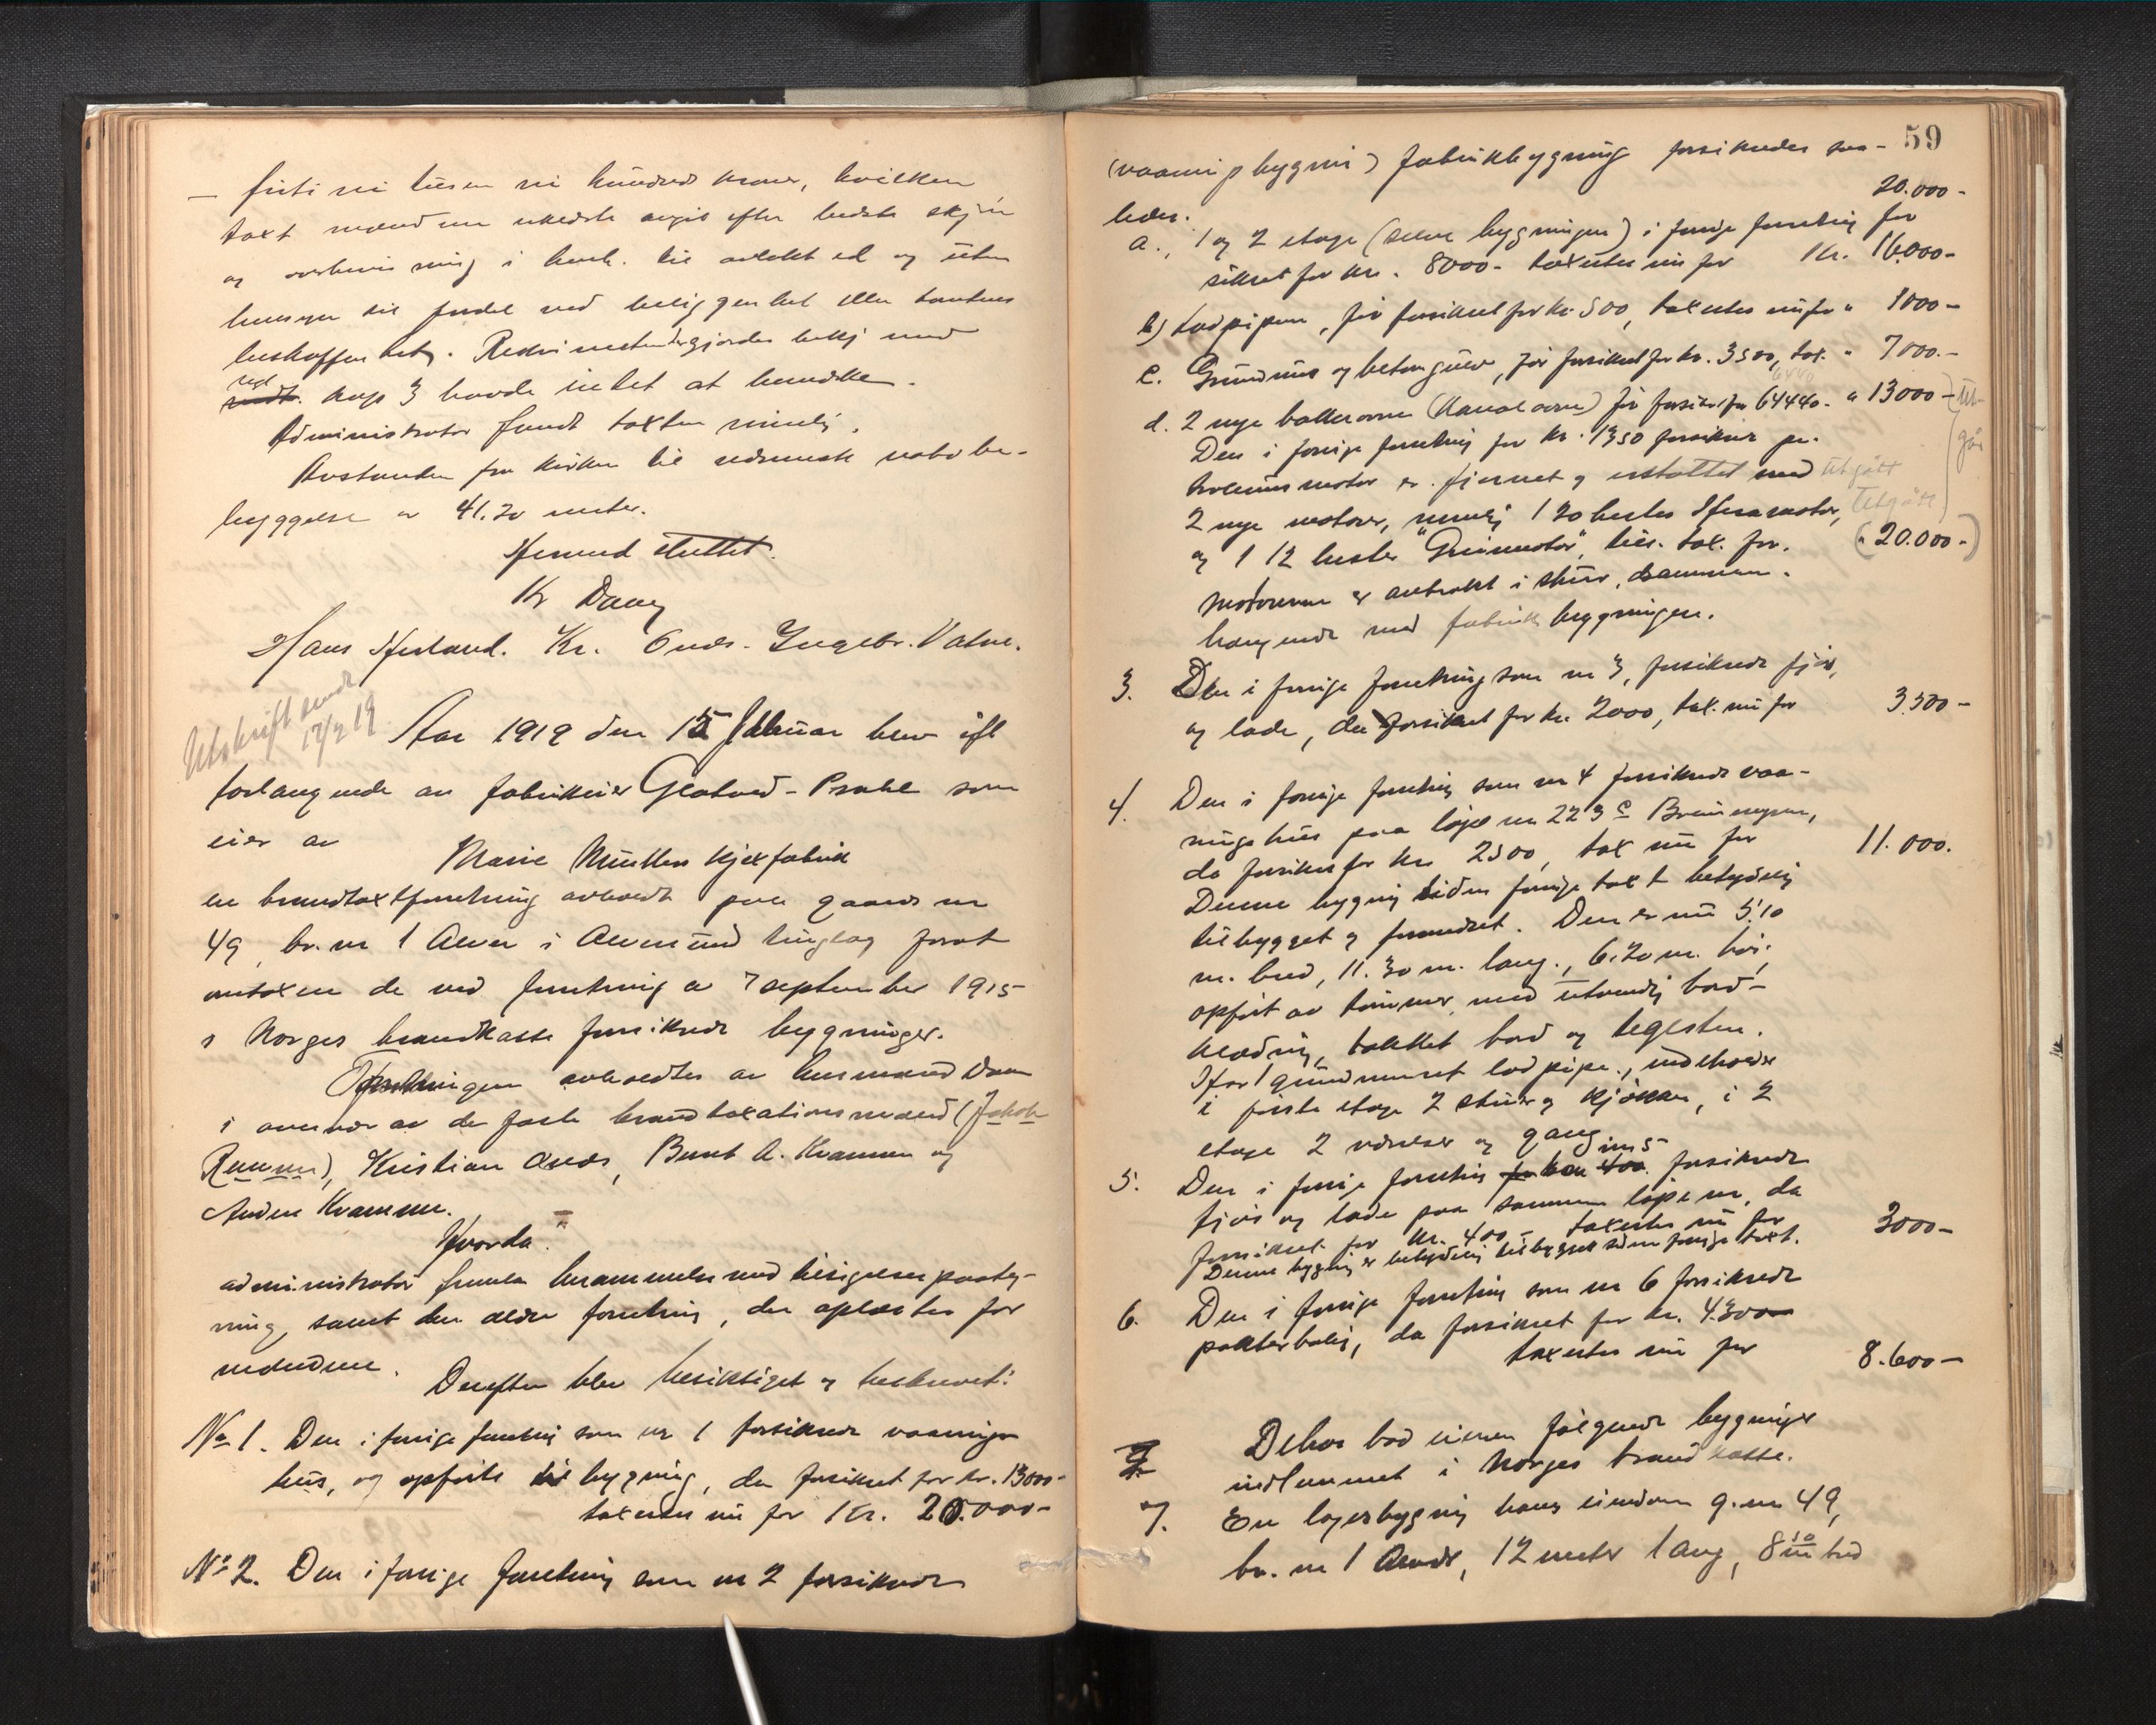 — firti ni tusen ni hundrede kroner, hvilken
taxt mændene ukedste avgit efter bedste skjøn
og overbevisning i henh. til avlakt ed og uten
hensyn til fordel ved beliggenhet eller tomtens
beskaffenhet. Redn mester gjordes bekj med
ved kap 3 havde intet at bemerke.
Administrator fandt taxten rimelig.
Avstanden fra kirken til nærmeste nabobe-
byggelse er 41.20 meter.
Hermed sluttet.
Kr Daae
Hans Hjertaard. Kr. Onds. Ingebr. Vatne.
Utskrift sendt
17/2 19
Aar 1919 den 15 februar blev efter
forlangende av fabrikeier Gloduad - Prahl som
eier av
Marie Müllers kjexfabrik
en brandtaxtforretning avholdt paa gaards nr
49, br. nr 1 Alver i Alversund tinglag forat
omtaxere de ved forretning av 7 september 1915
i Norges brandkasse forsikrede bygninger.
Forretningen avholdtes av lensmand Daae
i overvær av de faste brandtaxationsmænd (Jakob
), Kristian Onds, Bernt A. Kvamme og
Anders Kvamme.
Hvorda:
administrator fremla berammelse med tilsigelsespaateg-
ning, samt den ældre forretning, der oplæstes for
mændene.
Derefter blev besiktiget og beskrevet:
No 1. Den i forrige forretning som nr 1 forsikrede vaanings
hus, og opførte tilbygning, da forsikret for kr. 13000-
taxertes nu for Kr. 20.000-
No 2. Den i forrige forretning som nr 2 forsikrede
59
(vaaningsbygning) fabrikbygning forsikredes saa-
ledes.
20.000-
a., 1 og 2 etage (selve bygningen) i forrige forretning for
sikret for kr. 8000- taxertes nu for Kr. 16.000-
b) Lodpipen, før forsikret for kr. 500, taxertes nu for " 1000-
c. Grundmur og betongulv, før forsikret for kr. 3500, tax. " 7000.-
d. 2 nye bakerovne (Kanalovne) før forsikr. for 6440- " 13000-
Den i forrige forretning for kr. 1350 forsikrede pe-
troleumsmotor er fjernet og erstattet med utgått
2 nye motorer, nemlig 1 20 hestes motor, utgått
og 1 12 hestes "Greimotor", tils. tax. for. (" 20.000-)
Motorerne er anbrakt i skur, sammen-
hængende med fabrikbygningen.
3. Den i forrige forretning som nr 3, forsikrede fjøs,
og lade, da forsikret for kr. 2000, tax. nu for 3.500-
4. Den i forrige forretning som nr 4 forsikrede vaa-
ningshus paa løpe nr 223 c Breimyren,
da forsikret for kr. 2500, tax nu for 11.000.
Denne bygning siden forrige taxt betydelig
tilbygget og forandret. Den er nu 5.10
m. bred, 11.30 m. lang., 6.20 m. høi,
opført av tømmer, med utvendig bord-
klædning, takket bord og teglsten.
Har 1 grundmuret lodpipe., indeholder
i første etage 2 stuer og kjøkken, i 2
etage 2 værelser og gang
5. Den i forrige forretning for kr 400 som nr 5 forsikrede
fjøs og lade paa samme løpe nr, da
forsikret for kr. 400- taxertes nu for 3000-
Denne bygning er betydelig tilbygget siden forrige taxt.
6. Den i forrige forretning som nr 6 forsikrede
pakterbolig, da forsikret for kr. 4300
taxertes nu for 8.600-
Dehos bad eieren følgende bygninger
indlemmet i Norges brandkasse.
7. En lagerbygning paa eiendom g.nr 49,
br. nr 1 Alver, 12 meter lang, 8 50 m bred